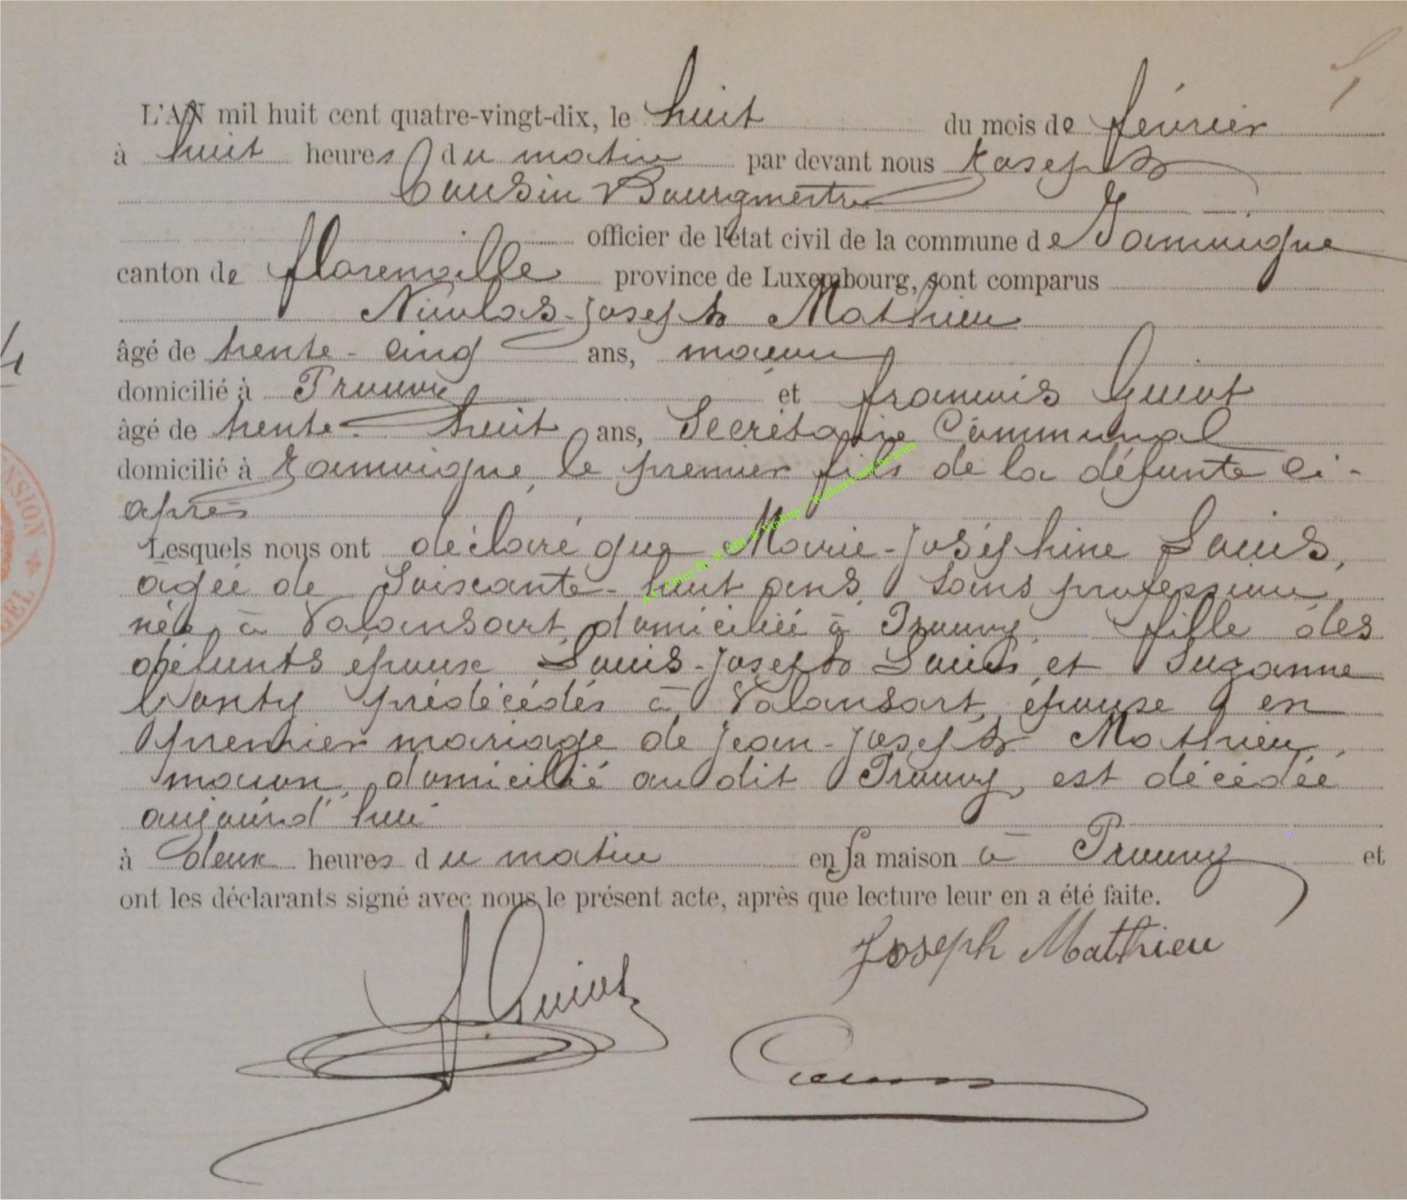 L'AN mil huit cent quatre-vingt-dix, le huit du mois de février
à huit heures du matin par devant nous Joseph
Cousin Bourgmestre
officier de l'état civil de la commune de Jamoigne
canton de florenville province de Luxembourg, sont comparus
Nicolas-Joseph Mathieu
4
âgé de trente-cinq ans, maçon
domicilié à Prouvy et francois Guiot
âgé de trente-huit ans, Secrétaire Communal
domicilié à Jamoigne, le premier fils de la défunte ci-
après
Lesquels nous ont déclaré que Marie-Joséphine Louis,
agée de Soixante-huit ans, Sans profession,
née à Valansart, domiciliée à Prouvy, fille des
défunts époux Louis-Joseph Louis et Suzanne
Wanty prédécédés à Valansart, épouse en
premier mariage de Jean-Joseph Mathieu,
maçon, domicilié au dit Prouvy, est décédée
aujourd'hui
à deux heures du matin en sa maison à Prouvy et
ont les déclarants signé avec nous le présent acte, après que lecture leur en a été faite.
Joseph Mathieu
f. Guiot
Cousin